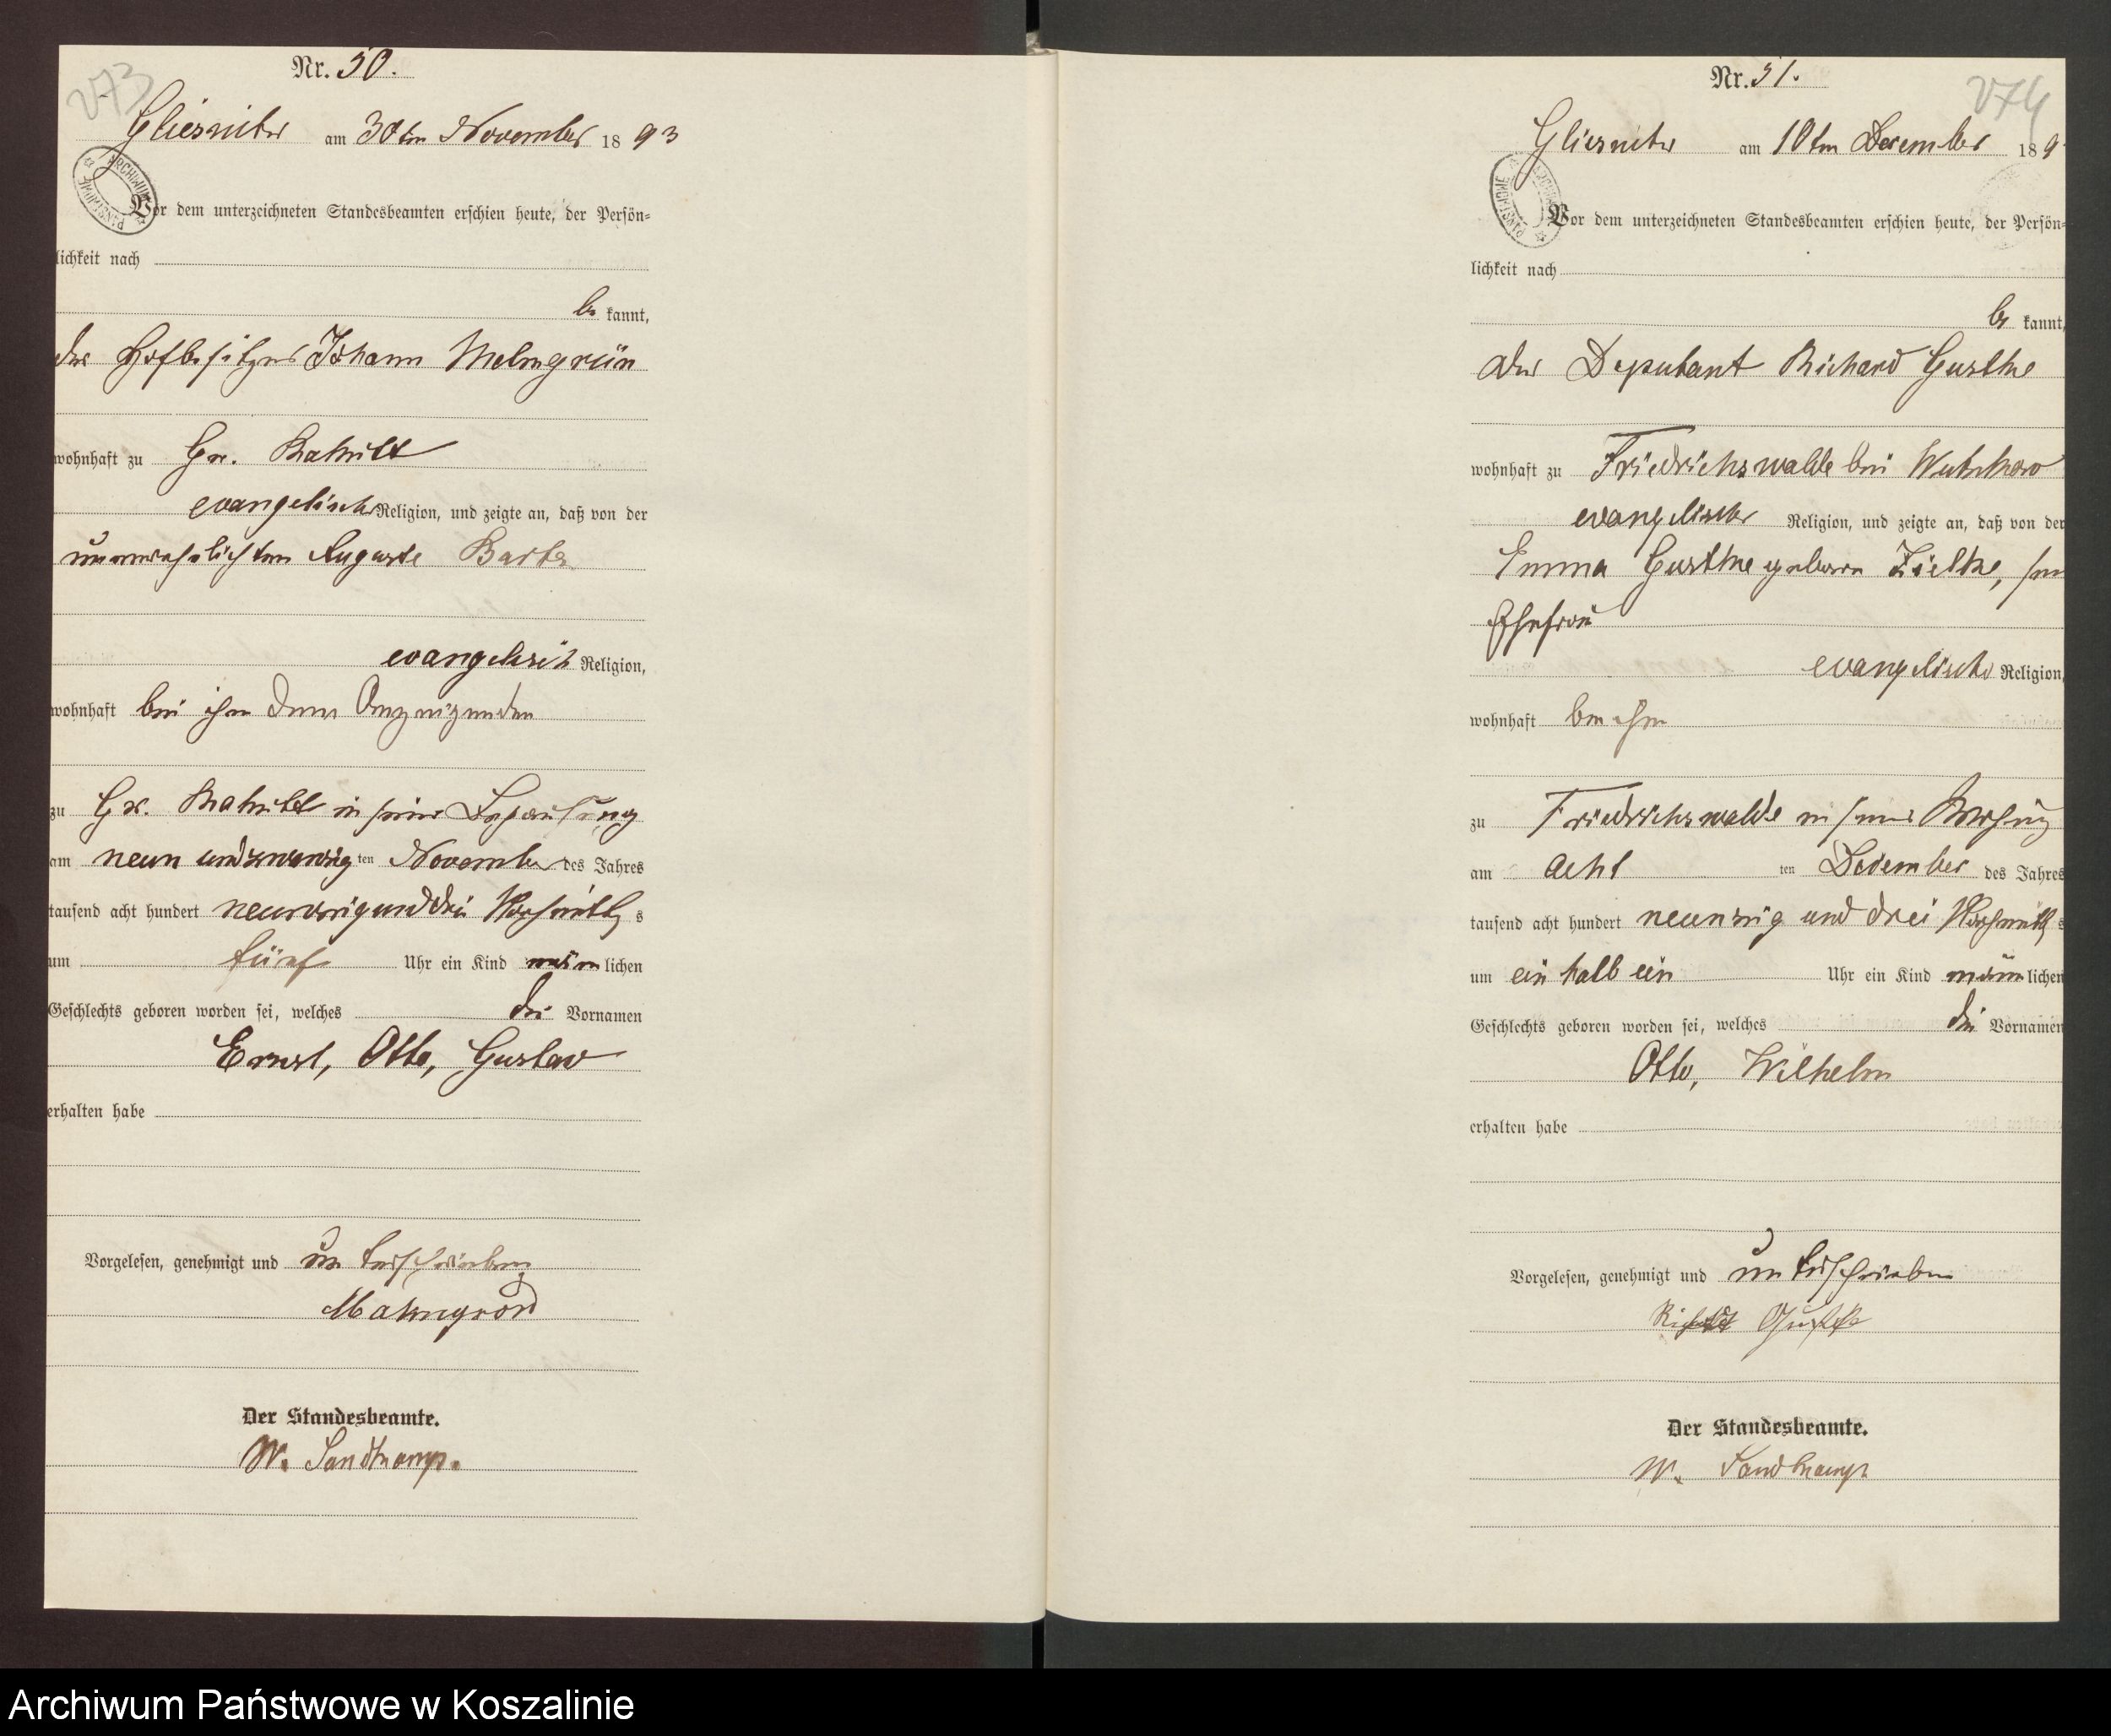 273
Nr. 50.
Gliesnitz am 30ten November 1893
ARCHIWUM PAŃSTWOWE
Vor dem unterzeichneten Standesbeamten erschien heute, der Persön=
lichkeit nach
be kannt,
der Hofbesitzer Johann
wohnhaft zu Gr.
evangelischer Religion, und zeigte an, daß von der
unverehelichten Auguste
evangelisch Religion,
wohnhaft bei ihm dem Anzeigenden
zu Gr. in seiner Behausung
am neun und zwanzig ten November des Jahres
tausend acht hundert neunzig und drei Vormittags
um fünf Uhr ein Kind männlichen
Geschlechts geboren worden sei, welches die Vornamen
Ernst, Otto, Gustav
erhalten habe
Vorgelesen, genehmigt und unterschrieben
Der Standesbeamte.
W. Sandkamp.
274
Nr. 51.
Gliesnitz am 10ten December 189
ARCHIWUM PAŃSTWOWE
Vor dem unterzeichneten Standesbeamten erschien heute, der Persön=
lichkeit nach
be kannt,
der Deputant Richard Gustke
wohnhaft zu Friedrichswalde bei Wutzkow
evangelischer Religion, und zeigte an, daß von der
Emma Gustke geborne Zielke, sein
Ehefrau
evangelischer Religion,
wohnhaft bei ihm
zu Friedrichswalde in seiner Wohnung
am acht ten December des Jahres
tausend acht hundert neunzig und drei Vormittags
um ein halb ein Uhr ein Kind männlichen
Geschlechts geboren worden sei, welches die Vornamen
Otto, Wilhelm
erhalten habe
Vorgelesen, genehmigt und unterschrieben
Gustke
Der Standesbeamte.
W. Sandkamp
Archiwum Państwowe w Koszalinie